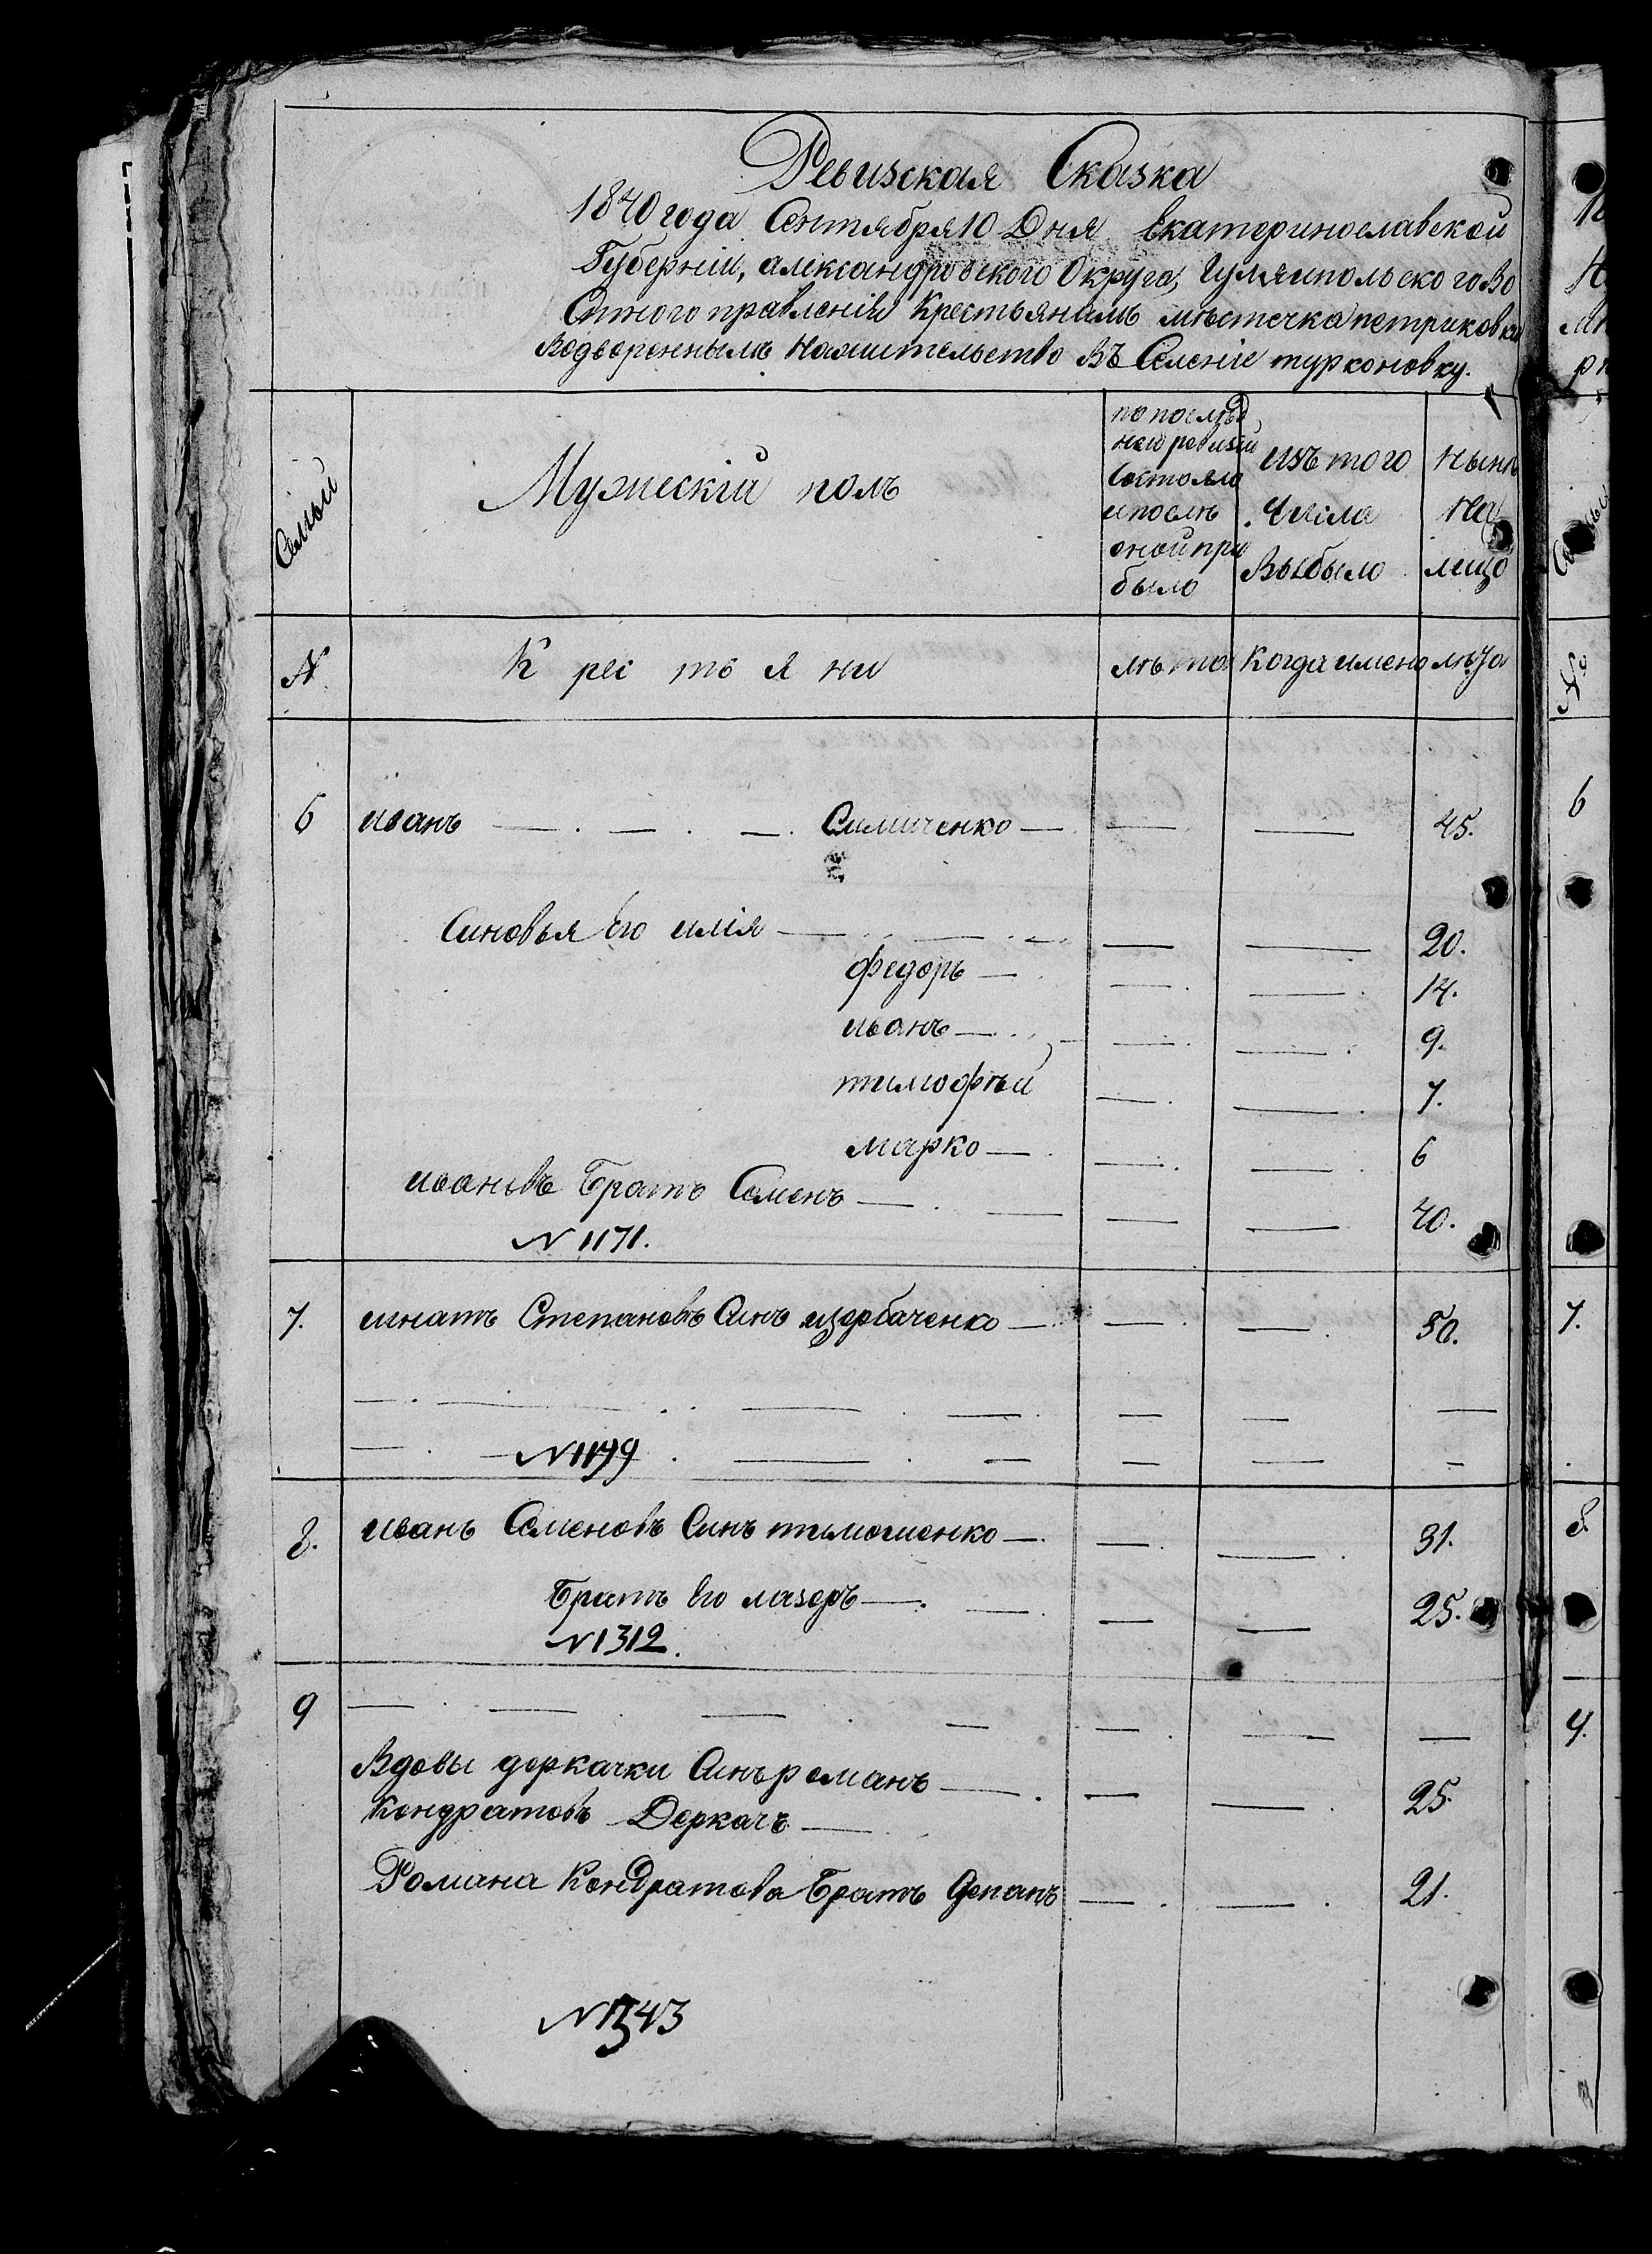 Ревизская Сказка
1840 года Сентября 10 Дня Екатеринославской
Губернiи, александровского Округа, Гуляипольского Во
Стного правленiя Крестьянамъ мѣстечка петриковки
Водвореннымъ Нажительство Въ Селенiе турконовку.
Семьи
Мужескiй полъ
по послѣд
ней ревизiи
состояло
и послѣ
оной при
было
изъ того
Числа
Выбыло
Нынѣ
На
лицо
№
Крестьяни
лѣта
Когда имено
лѣта
6 иванъ Симиченко 45.
Синовья Его илiя 20.
федоръ 14.
иванъ 9.
тимофѣй 7.
марко 6
ивановъ Братъ Семенъ 40.
N 1171.
7. игнатъ Степановъ Синъ щербаченко 50.
N 1199
8. иванъ Семеновъ Синъ тимошенко 31.
Братъ Его лазоръ 25.
N 1312.
9
Вдовы деркачки Синъ романъ 25.
Кондратовъ Деркачъ
Романа Кондратова Братъ Степанъ 21.
N 1343
6
7.
8.
9.